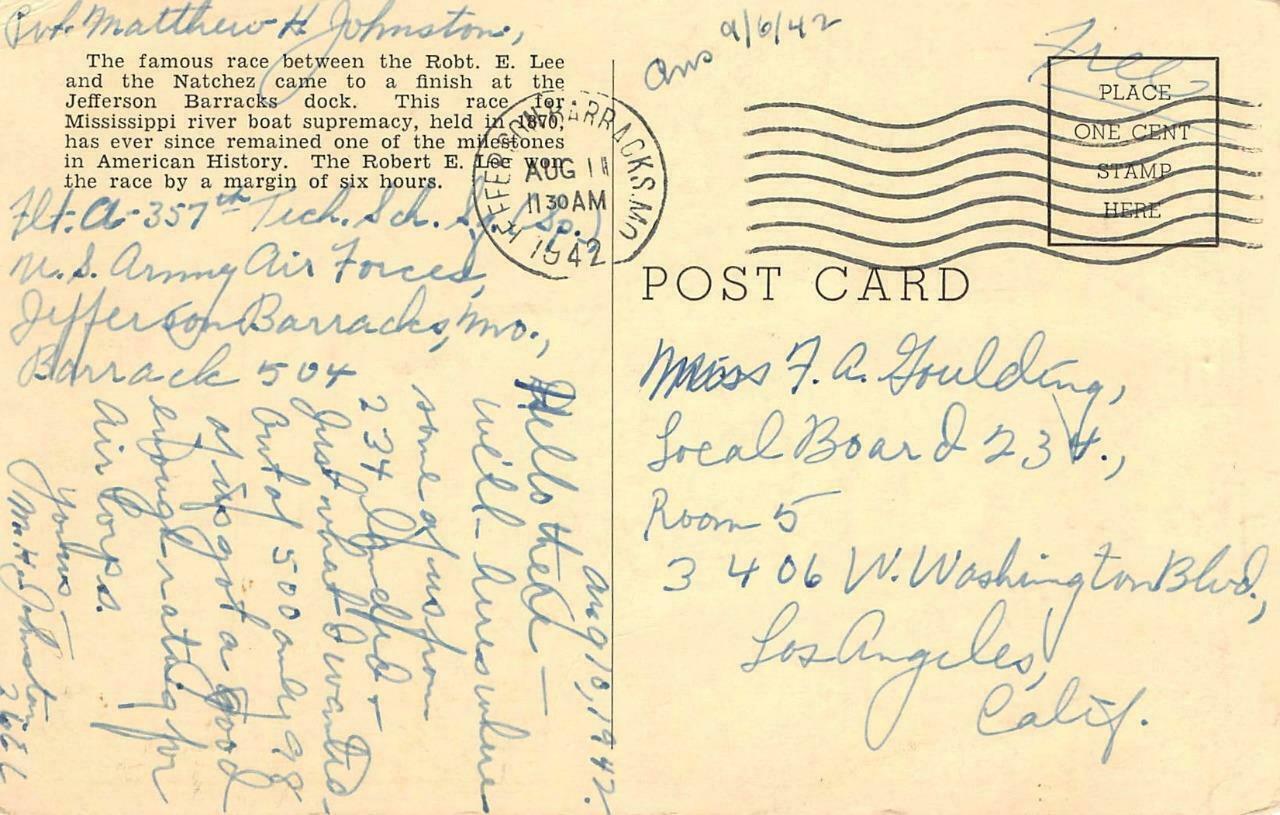 Pvt. Matthew H Johnston,
The famous race between the Robt. E. Lee
and the Natchez came to a finish at the
Jefferson Barracks dock. This race for
Mississippi river boat supremacy, held in 1870,
has ever since remained one of the milestones
in American History. The Robert E. Lee won
the race by a margin of six hours.
Flt-A-357th Tech. Sch. (Sp.)
U.S. Army Air Forces,
Jefferson Barracks, Mo.,
Barrack 504
Aug 10, 1942.
Hello there —
Well - here's where
some of us from
234 landed -
Just what I wanted -
Out of 500 only 98
of us got a good
enough rating for
Air Corps.
Yours -
Matt Johnston
2666
Ans 9/6/42
JEFFERSON BARRACKS. MO
AUG 11
11 30 AM
1942
Free
PLACE
ONE CENT
STAMP
HERE
POST CARD
Miss F. A. Goulding,
Local Board 234.,
Room 5
3406 W. Washington Blvd.,
Los Angeles,
Calif.